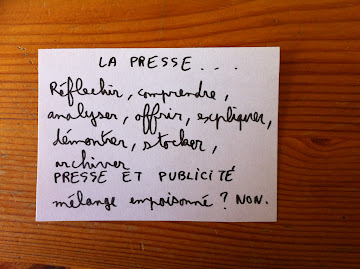 LA PRESSE...
Réflechir, comprendre,
analyser, offrir, expliquer,
démontrer, stocker,
archiver
PRESSE ET PUBLICITÉ
mélange empoisonné ? NON.